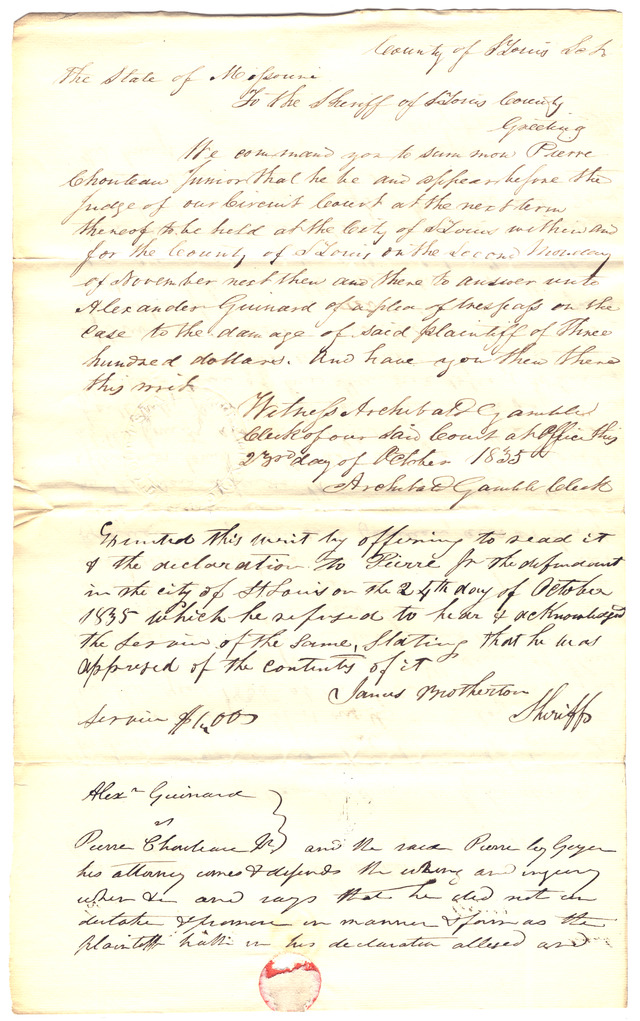 County of St Louis Sct
The State of Missouri
To the Sheriff of St Louis County
Greeting
We command you to summon Pierre
Chouteau Junior that he be and appear before the
Judge of our Circuit Court at the next term
thereof to be held at the City of St Louis within and
for the County of St Louis on the Second Monday
of November next then and there to answer unto
Alexander Guinard of a plea of trespass on the
case to the damage of said plaintiff of three
hundred dollars. And have you then there
this writ
Witness Archibald Gamble
Clerk of our said Court at Office this
23rd day of October 1835
Archibald Gamble Clerk
Executed this writ by offering to read it
& the declaration to Pierre Jr the defendant
in the city of St Louis on the 24th day of October
1835 which he refused to hear & acknowledged
the Service of the same, Stating that he was
apprised of the contents of it
James Brotherton
Service $1,00 Sheriff
Alexr Guinard
vs
Pierre Chouteau Jr and the said Pierre by Geyer
his attorney comes & defends the wrong and injury
when & and says that he did not un
dertake & promise in manner & form as the
plaintiff hath in his declaration alledged and